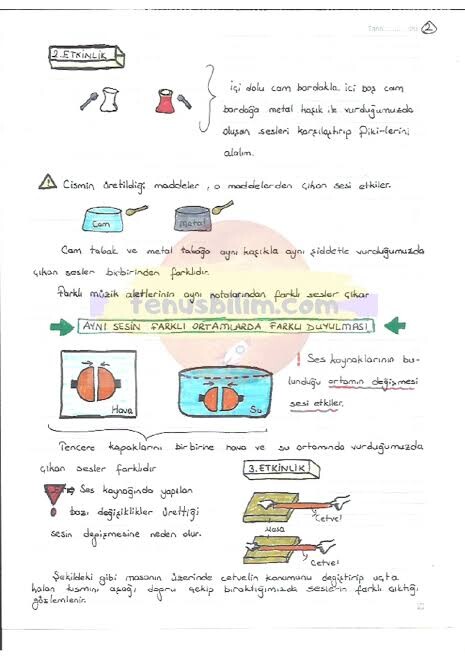 2
2. ETKİNLİK
İçi dolu cam bardakla içi boş cam
bardağa metal kaşık ile vurduğumuzda
oluşan sesleri karşılaştırıp fikirlerini
alalım.
Cismin üretildiği maddeler, o maddelerden çıkan sesi etkiler.
Cam
Metal
Cam tabak ve metal tabağa aynı kaşıkla aynı şiddetle vurduğumuzda
çıkan sesler birbirinden farklıdır.
Farklı müzik aletlerinin aynı notalarından farklı sesler çıkar
fenusbilim.com
AYNI SESİN FARKLI ORTAMLARDA FARKLI DUYULMASI
Hava
Su
! Ses kaynaklarının bu-
lunduğu ortamın değişmesi
sesi etkiler.
Tencere kapaklarını birbirine hava ve su ortamında vurduğumuzda
çıkan sesler farklıdır
3. ETKİNLİK
Ses kaynağında yapılan
bazı değişiklikler ürettiği
sesin değişmesine neden olur.
Cetvel
Masa
Cetvel
Şekildeki gibi masanın üzerinde cetvelin konumunu değiştirip uçta
kalan kısmını aşağı doğru çekip bıraktığımızda seslerin farklı çıktığı
gözlemlenir.